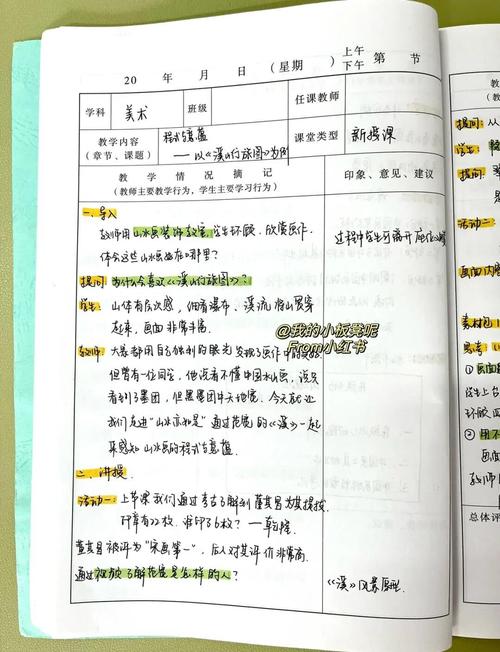 20 年 月 日 (星期 ) 上午 下午 第 节
学科 美术 班级 任课教师
教学内容 (章节、课题) 程式与意蕴 ——以《溪山行旅图》为例 课堂类型 新授课
教 学 情 况 摘 记
(教师主要教学行为，学生主要学习行为)
印象、意见、建议
一、导入
教师用山水画装饰教室，学生环顾、欣赏画作.
体会这些山水画在哪里？
过程中学生可离开座位
提问：为什么喜欢《溪山行旅图》？
学生：山体有层次感，但有瀑布、溪流
起来，画面非常丰富.
教师：大家都用自己独到的眼光发现了画作中的
但曾有一位同学，他说看不懂中国山水画，说只
看到了墨团，但墨团中天地宽. 今天就让
我们走进“山水
通过范宽的《溪》一起
来感知山水画的程式与意蕴
二、讲授
活动一：上节课我们通过考古了解到董其昌为其提拔，
印章有22枚. 谁印了6枚？—乾隆
董其昌被评为“宋画第一”，后人对其评价非常高
通过视频了解范宽是怎样的人？
《溪》风景原型.
@我的小板凳呢
From小红书
提问：从
学生：
提问
活动二
画面内
素材包
思考：
①画面
学生上台
环顾四
②用不
画面
教师
总体评